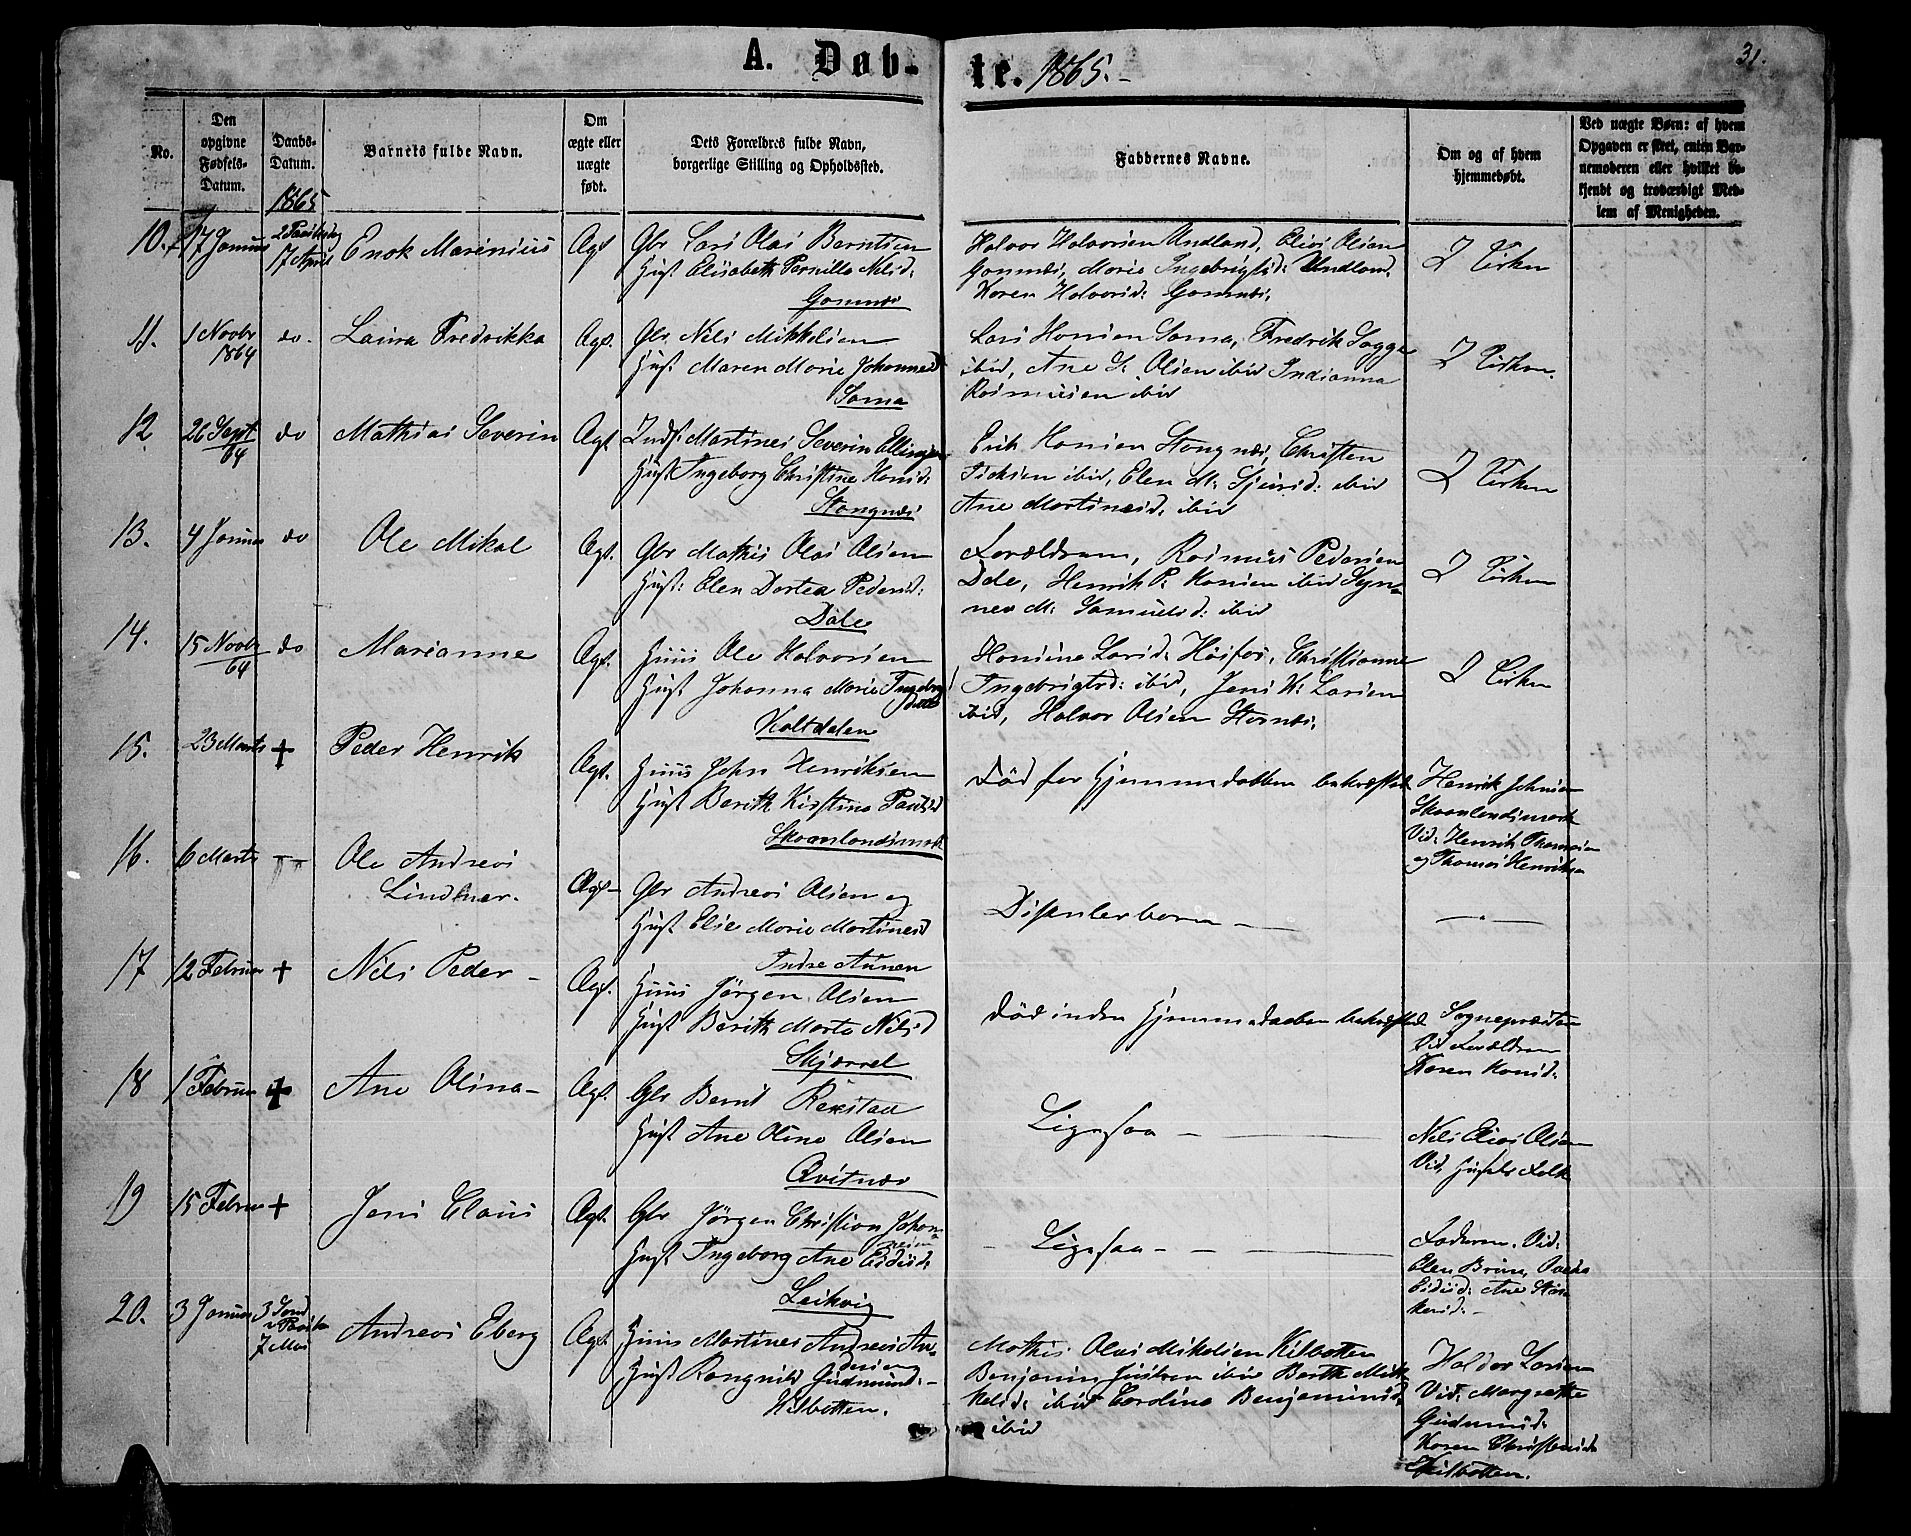 A. Døb-
te. 1865.-
31.
No.
Den opgivne Fødsels-Datum.
Daabs-Datum.
1865
Barnets fulde Navn.
Om ægte eller uægte født.
Dets Forældres fulde Navn, borgerlige Stilling og Opholdssted.
Faddernes Navne.
Om og af hvem hjemmedøbt.
Ved uægte Børn: af hvem
Opgaven er skeet, enten Bar-
nemoderen eller hvilket be-
kjendt og troværdigt Med-
lem af Menigheden.
10. 17 Januar 17 April Enok Marinius Ægt Gbr Lars Olai Berntsen
Hust Elisabeth Pernille Nilsd:
Halvor Halvorsen Undland, Elias Olsen
Marie Ingebrigtsd: Undland,
Karen Halvorsd:
I Kirken
11. 1 Novbr 1864 do. Laura Fredrikka Ægt. Gbr Nils Mikkelsen
Hust Maren Marie Johannesd
Sama
Lars Hansen Sama, Fredrik
ibid, Ane Olsen ibid Indianna
Rasmusen ibid
I Kirken.
12 26 Sept 64 do Mathias Severin Ægt Inds: Martines Severin Ellingsen
Hust Ingeborg Christine Hansd:
Stangnæs
Erik Hansen Stangnæs, Christen
ibid, Elen M: Sjursd: ibid
Ane Martinesd. ibid
I Kirken
13. 4 Januar do Ole Mikal Ægt. Gbr Mathis Olai Olsen
Hust: Elen Dortea Pedersd:
Dale
Forældrene, Rasmus Pedersen
Dale, Henrik P: Hansen ibid Syn-
nev M: Samuelsd: ibid
I Kirken
14. 15 Novbr 64 do Marianne Ægt. Huus Ole Halvorsen
Hust Johanna Marie
Kaltdalen
Hansine Larsd: Høifos, Christianne
Ingebrigtsd: ibid, Jens K: Larsen
ibid, Halvor Olsen
I Kirken
15. 23 Marts + Peder Henrik Ægt. Huus John Henriksen
Hust Berith Kirstina
Skaanlandsmark
Død før Hjemmedaaben bekræftet
Henrik Johnsen
Skaanlandsmark
Vid: Henrik Thomasen
og Thomas Henriksen
16. 6 Marts Ole Andreas
Lindtner.
Ægt- Gbr Andreas Olsen og
Hust Elise Marie Martinesd
Indre Aunen
Dissenterbarn -
17 12 Februar + Nils Peder - Ægt. Huus Jørgen Olsen
Hust Berith Marta Nilsd
Skjærvel
Død inden Hjemmedaaben bekræftet
Sognepræsten
Vid Forældrene
Karen Hansd:
18 1 Februar + Ane Olina- Ægt. Gbr Bernt Rekstad
Hust Ane Oline Olsen
Qvitnæs
Ligesaa -
Nils Elias Olsen
Vid, Husets Folk
19 15 Februar + Jens Claus Ægt. Gbr Jørgen Christian Johan-
nesen
Hust Ingeborg Ane Eidisd:
Leikvig
- Ligesaa - -
Faderen. Vid:
Elen Bruun,
Eidisd: Ane
20. 3 Januar 3 Sønd Paaske
7 Mai
Andreas Eberg Ægt. Huus Martines Andreas An-
dersen
Hust Rangnild Gudmund.-
Kilbotten.
Mathis Olai Mikelsen Kilbotten
Benjamin ibid Berith Mik-
kelsd: ibid Caroline Benjaminsd.
ibid
Haldor Larsen
Vid: Margrethe
Gudmunds:
Karen Christensd:
Kilbotten.